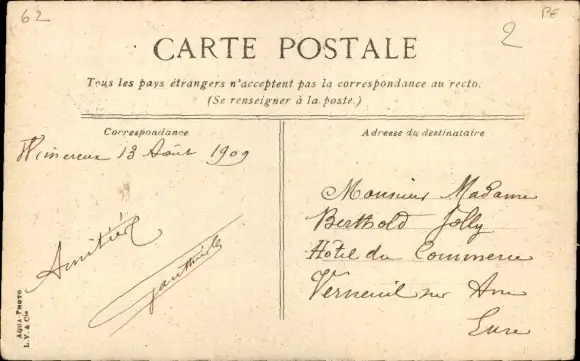 62
PE
2
CARTE POSTALE
Tous les pays étrangers n'acceptent pas la correspondance au recto.
(Se renseigner à la poste.)
Correspondance
Wimereux 13 Août 1909
Amitiés
Adresse du destinataire
Monsieur Madame
Berthold Jolly
Hôtel du Commerce
Verneuil sur Avre
Eure
AQUA-PHOTO
L.V. & Cie